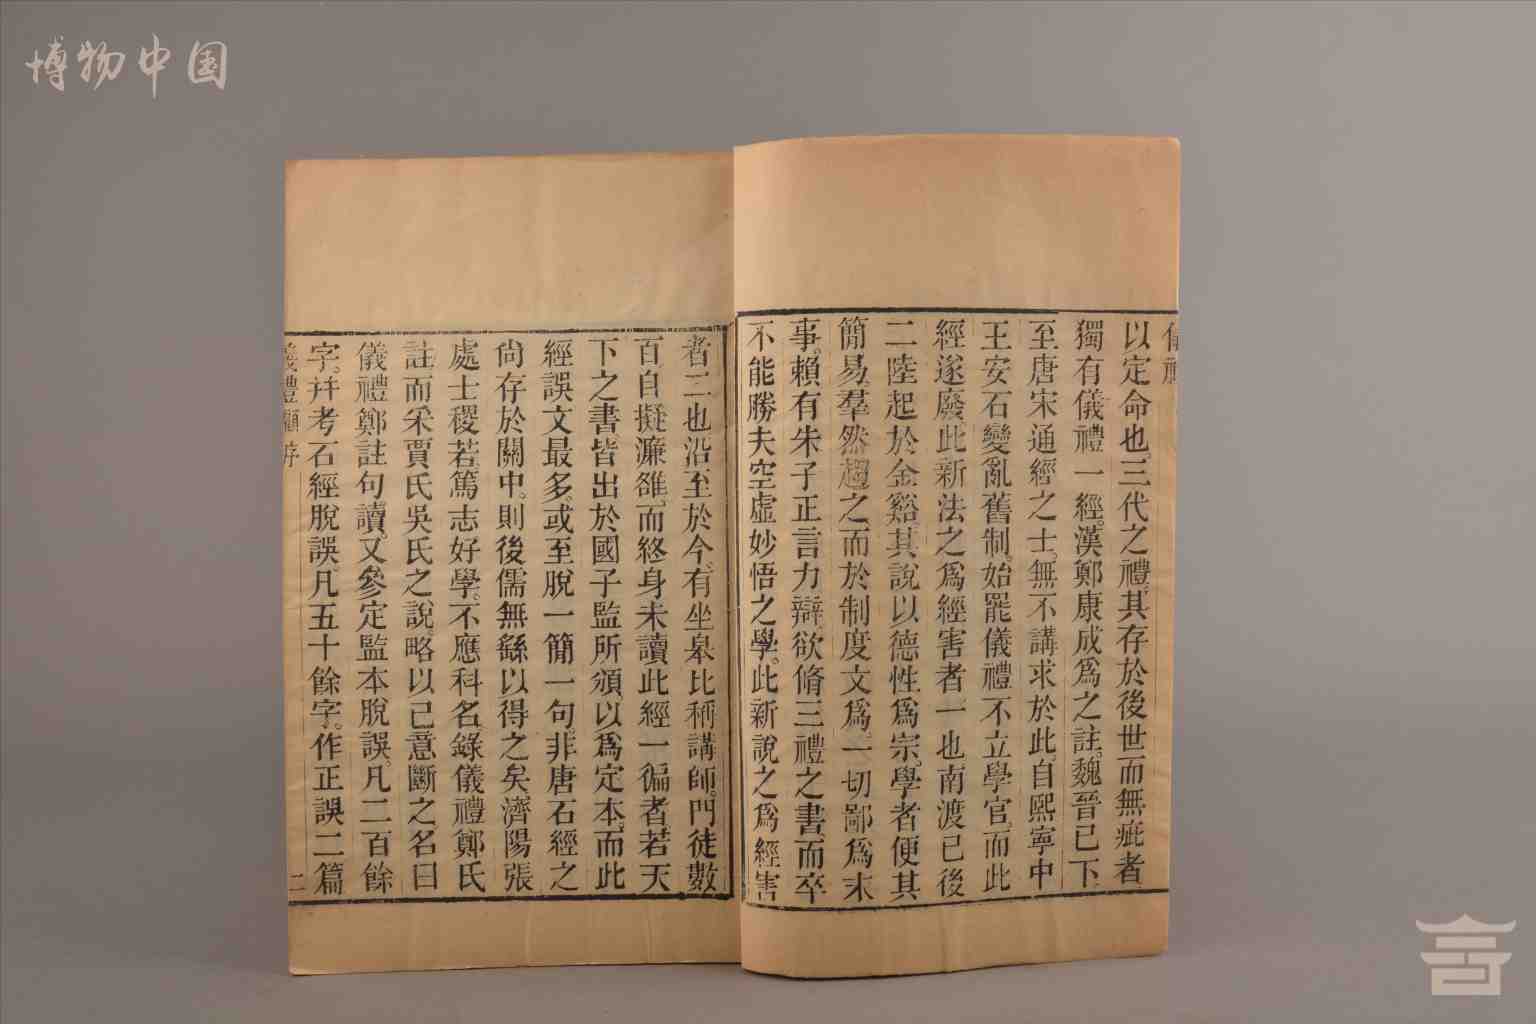 博物中国
以定命也。三代之禮。其存於後世而無疵者
獨有儀禮一經。漢鄭康成爲之註。魏晉已下
至唐宋通經之士。無不講求於此。自熙寧中
王安石變亂舊制。始罷儀禮不立學官。而此
經遂廢。此新法之爲經害者一也南渡已後
二陸起於金谿。其說以德性爲宗。學者便其
簡易。羣然趨之。而於制度文爲。一切鄙爲末
事。賴有朱子正言力辯欲脩三禮之書。而卒
不能勝夫空虛妙悟之學。此新說之爲經害
者二也沿至於今。有坐皋比稱講師。門徒數
百自擬濂雒。而終身未讀此經一徧者。若天
下之書。皆出於國子監所頒。以爲定本。而此
經誤文最多。或至脫一簡一句。非唐石經之
尙存於關中。則後儒無繇以得之矣濟陽張
處士稷若篤志好學。不應科名。錄儀禮鄭氏
註而采賈氏吳氏之說。略以己意斷之名曰
儀禮鄭註句讀。又參定監本脫誤。凡二百餘
字。幷考石經脫誤凡五十餘字。作正誤二篇
儀禮 顧序 二